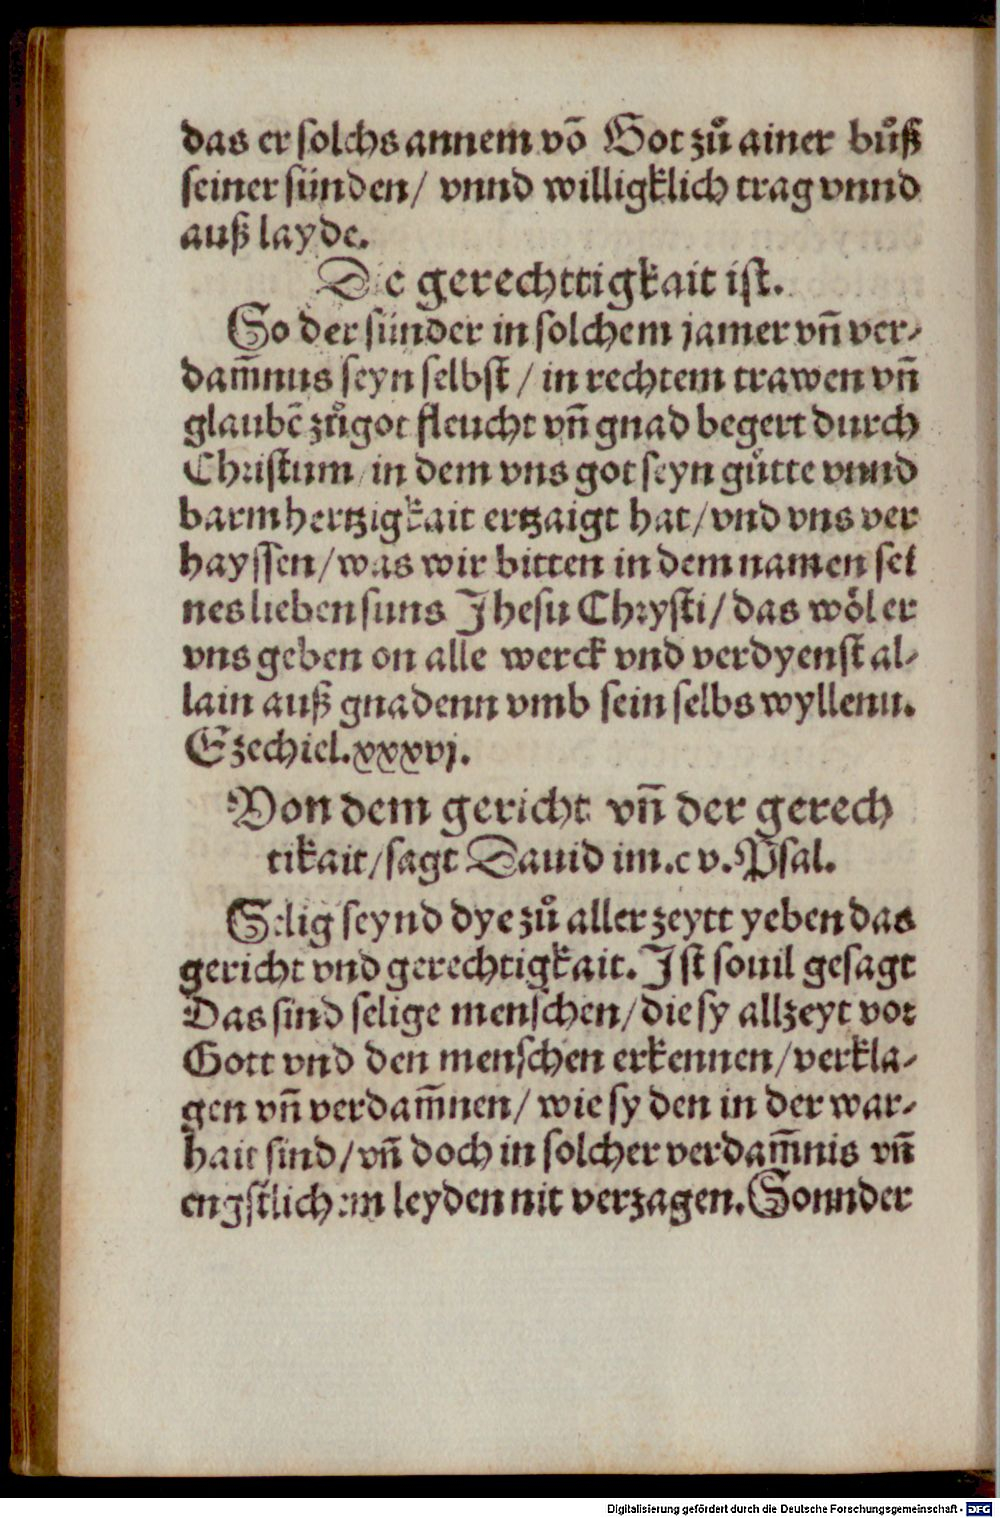 das er solchs annem võ Got zů ainer bůß
seiner sünden/ vnnd willigklich trag vnnd
auß layde.
Die gerechttigkait ist.
So der sünder in solchem jamer vñ ver-
dam̃nus seyn selbst / in rechtem trawen vñ
glaubẽ zůgot fleucht vñ gnad begert durch
Christum/ in dem vns got seyn gůtte vnnd
barmhertzigkait ertzaigt hat/ vnd vns ver
hayssen/ was wir bitten in dem namen sei
nes lieben suns Jhesu Chrysti/ das wöl er
vns geben on alle werck vnd verdyenst al-
lain auß gnadenn vmb sein selbs wyllenn.
Ezechiel.xxxvj.
Von dem gericht vñ der gerech
tikait/ sagt Dauid im.c v.Psal.
Selig seynd dye zů aller zeytt yeben das
gericht vnd gerechtigkait. Ist souil gesagt
Das sind selige menschen/ die sy allzeyt vor
Gott vnd den menschen erkennen/ verkla-
gen vñ verdam̃nen/ wie sy den in der war-
hait sind/ vñ doch in solcher verdam̃nis vñ
engstlichem leyden nit verzagen. Sonnder
Digitalisierung gefördert durch die Deutsche Forschungsgemeinschaft - DFG